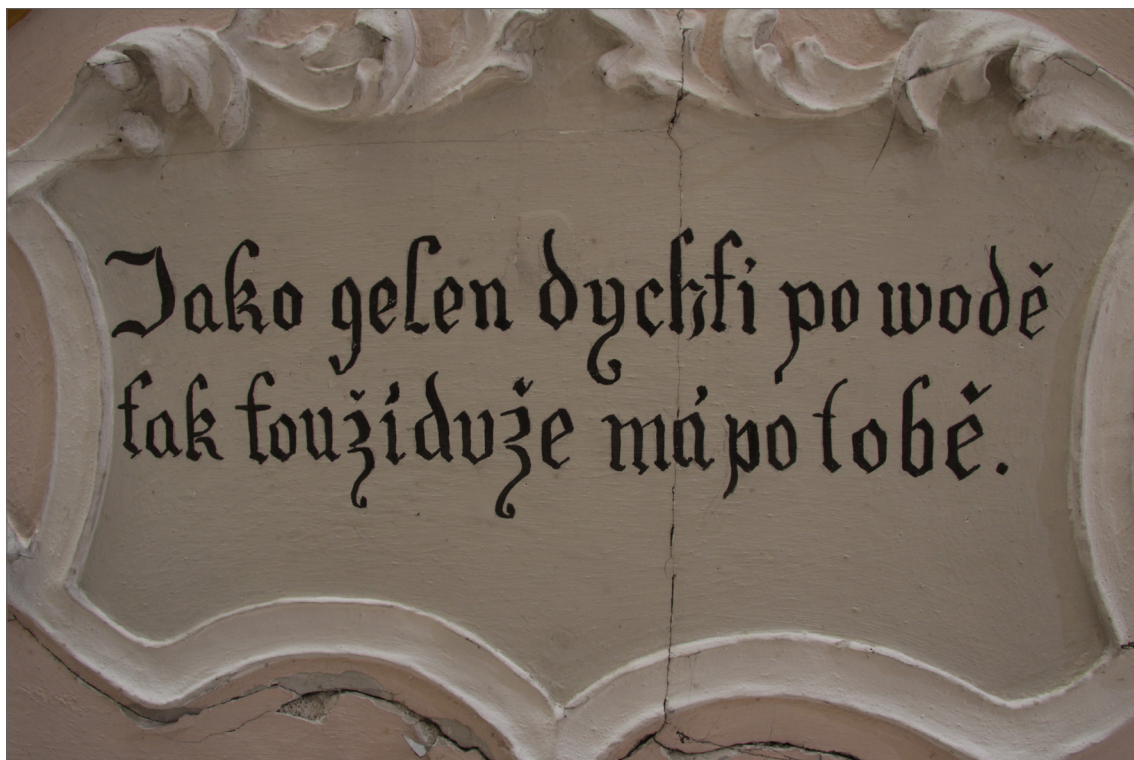 Jako gelen dychti po wodě
tak toužíduže má po tobě.